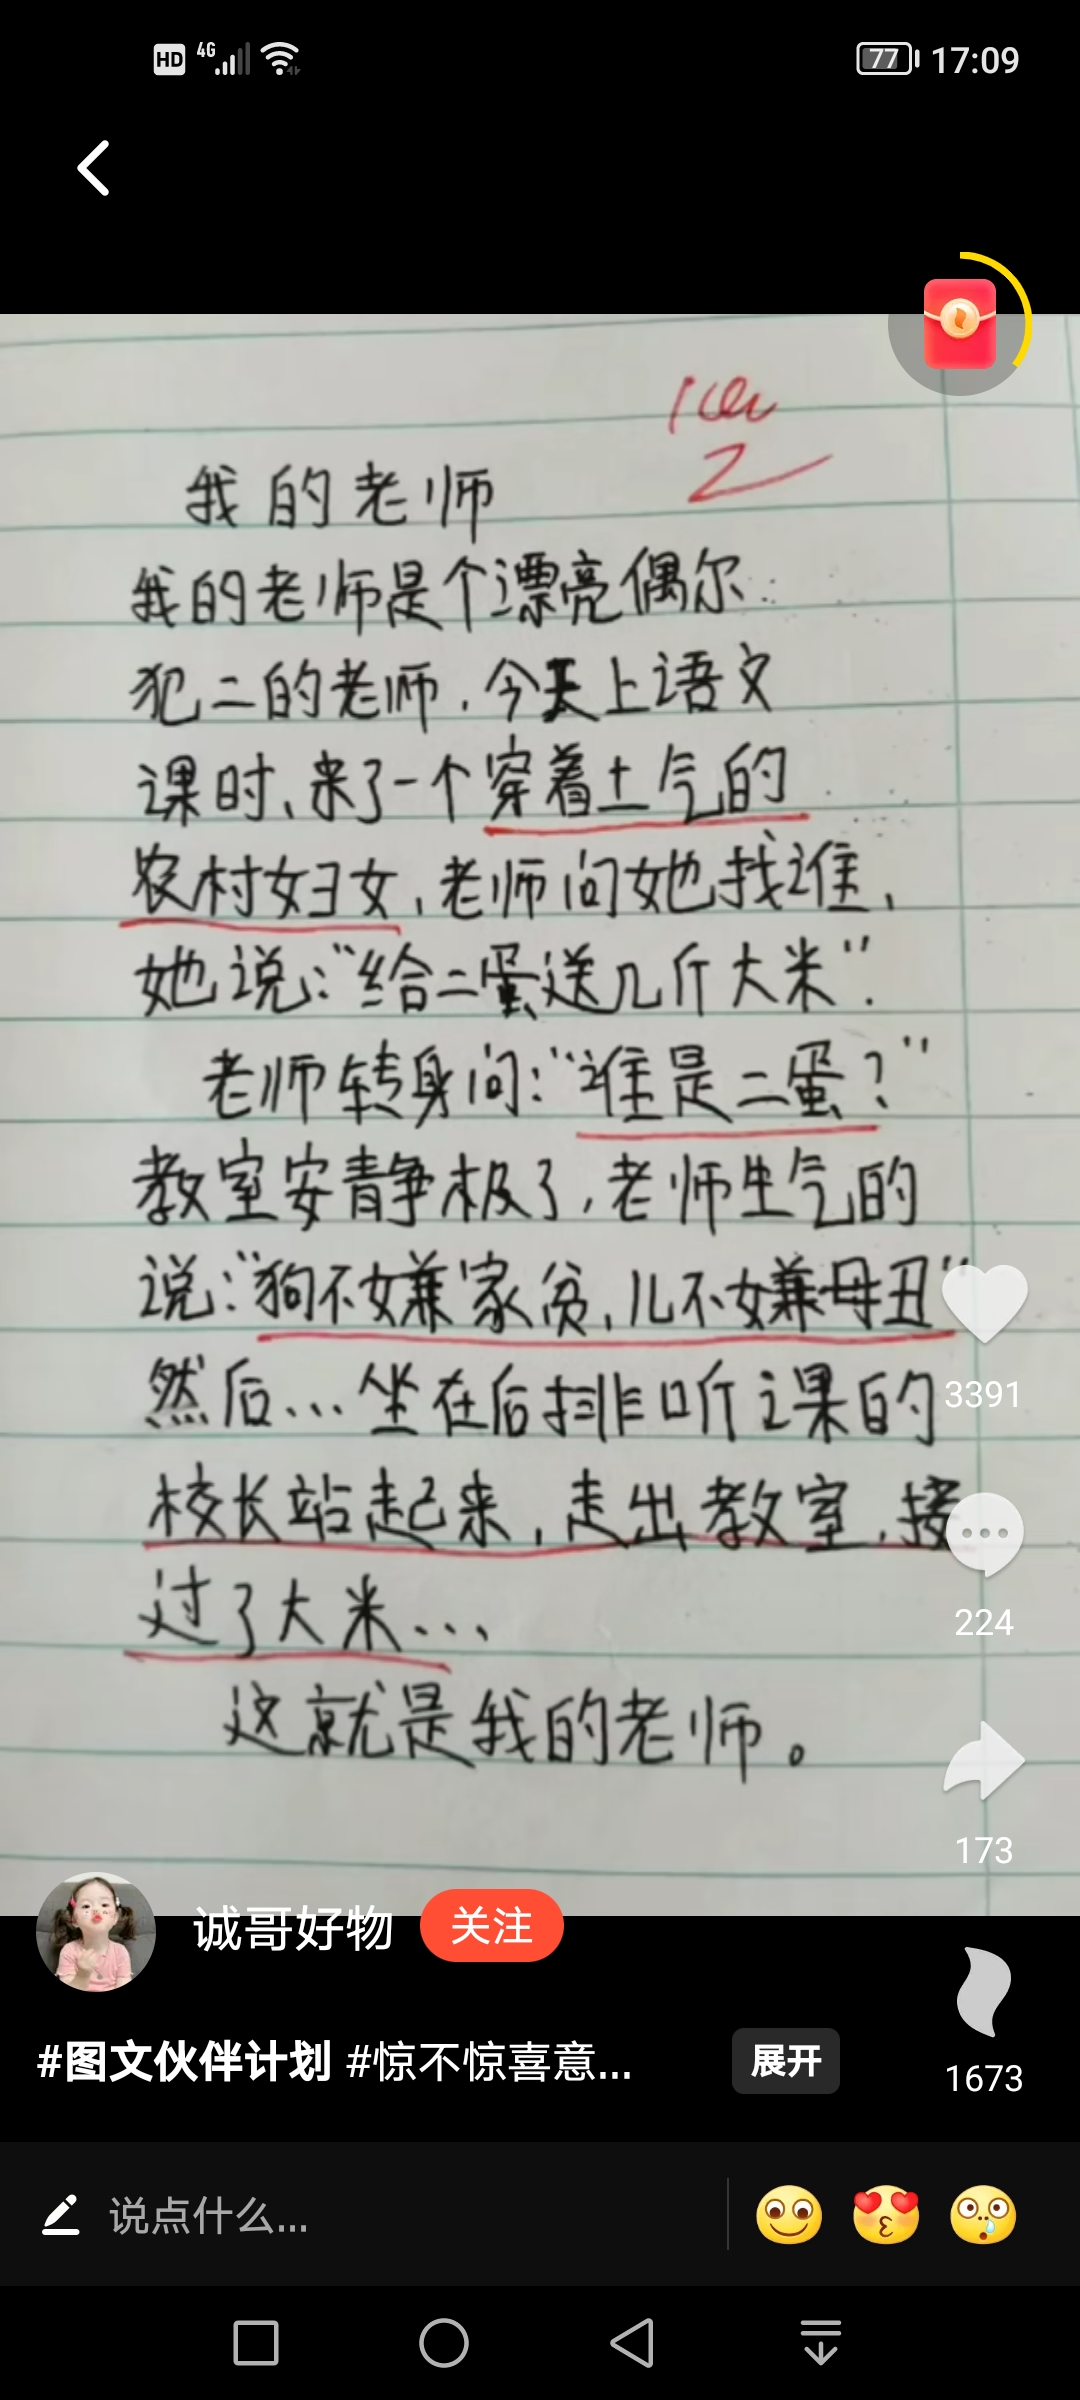 HD 4G 77 17:09
100
我的老师
我的老师是个漂亮偶尔
犯二的老师.今天上语文
课时、来了一个穿着土气的
农村妇女,老师问她找谁,
她说:“给二蛋送几斤大米”.
老师转身问:“谁是二蛋?”
教室安静极了,老师生气的
说:“狗不嫌家贫,儿不嫌母丑“
然后...坐在后排听课的
校长站起来,走出教室,接
过了大米...
这就是我的老师。
3391
224
173
诚哥好物 关注
#图文伙伴计划 #惊不惊喜意... 展开
1673
说点什么...